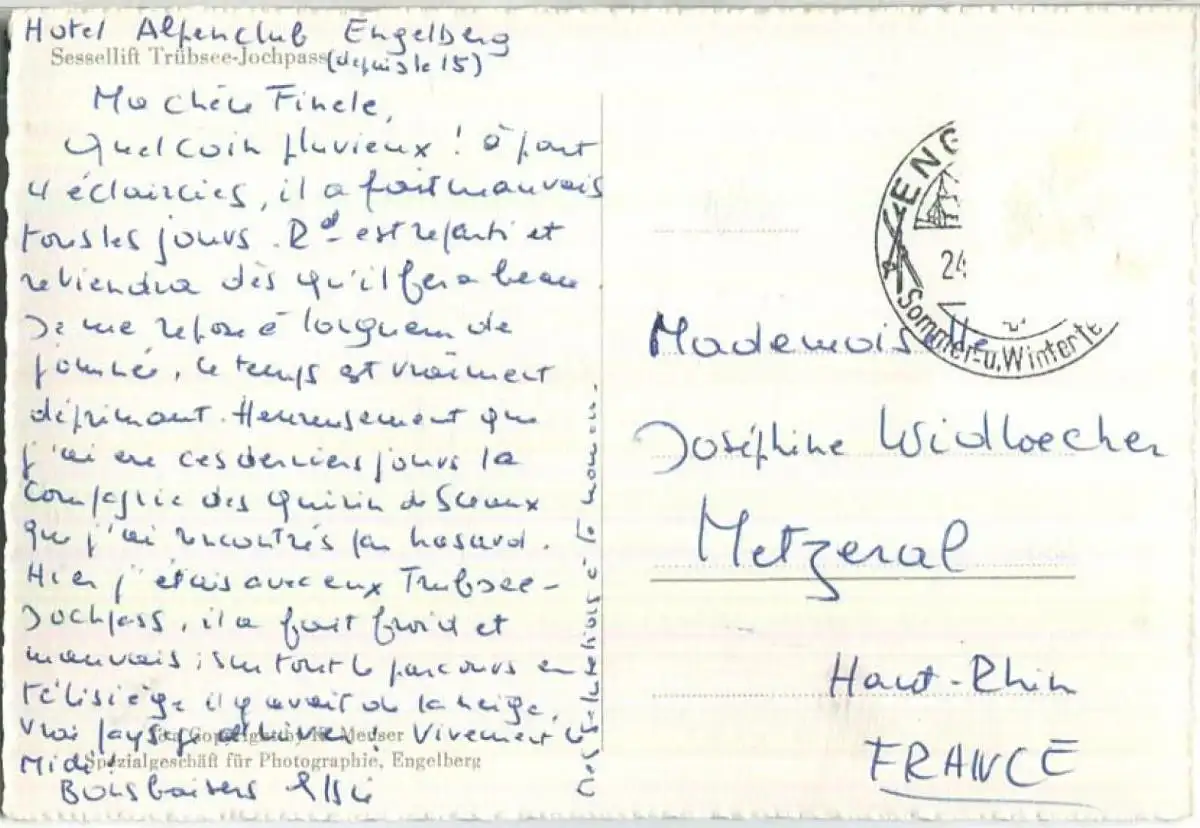 Hotel Alpenclub Engelberg
Sessellift Trübsee-Jochpass
(depuis le 15)
Ma chère Finele,
Quel coin pluvieux ! à part
4 éclaircies, il a fait mauvais
tous les jours. Rd est reparti et
reviendra dès qu'il fera beau.
Je me repose à longueur de
journée, le temps est vraiment
déprimant. Heureusement que
j'ai eu ces derniers jours la
compagnie des Quirin de Sceaux
que j'ai rencontrés par hasard.
Hier j'étais avec eux Trubsee-
Jochpass, il a fait froid et
mauvais ; sur tout le parcours en
télésiège il y avait de la neige,
vrai paysage d'hiver ! Vivement le
Copyright by K. Meuser
Midi !
Spezialgeschäft für Photographie, Engelberg
Bons baisers
à ta maman.
ENG
24
Sommer- u. Winter
Mademoiselle
Joséphine Widloecher
Metzeral
Haut-Rhin
FRANCE